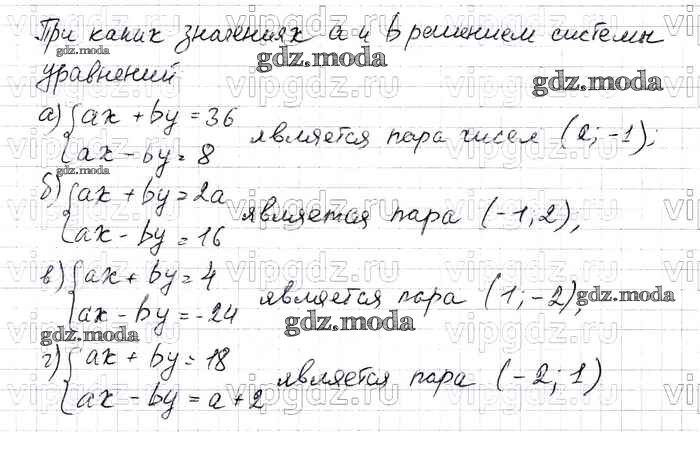 При каких значениях a и b решением системы
gdz.moda gdz.moda
уравнений gdz.moda
vipgdz.ru vipgdz.ru vipgdz.ru
а) { ax + by = 36
ax - by = 8 является пара чисел (2; -1);
gdz.moda
б) { ax + by = 2a
ax - by = 16 является пара (-1; 2),
vipgdz.ru vipgdz.ru vipgdz.ru
в) { ax + by = 4
ax - by = -24 является пара (1; -2), gdz.moda
gdz.moda gdz.moda
г) { ax + by = 18
ax - by = a + 2 является пара (-2; 1)
vipgdz.ru vipgdz.ru vipgdz.ru